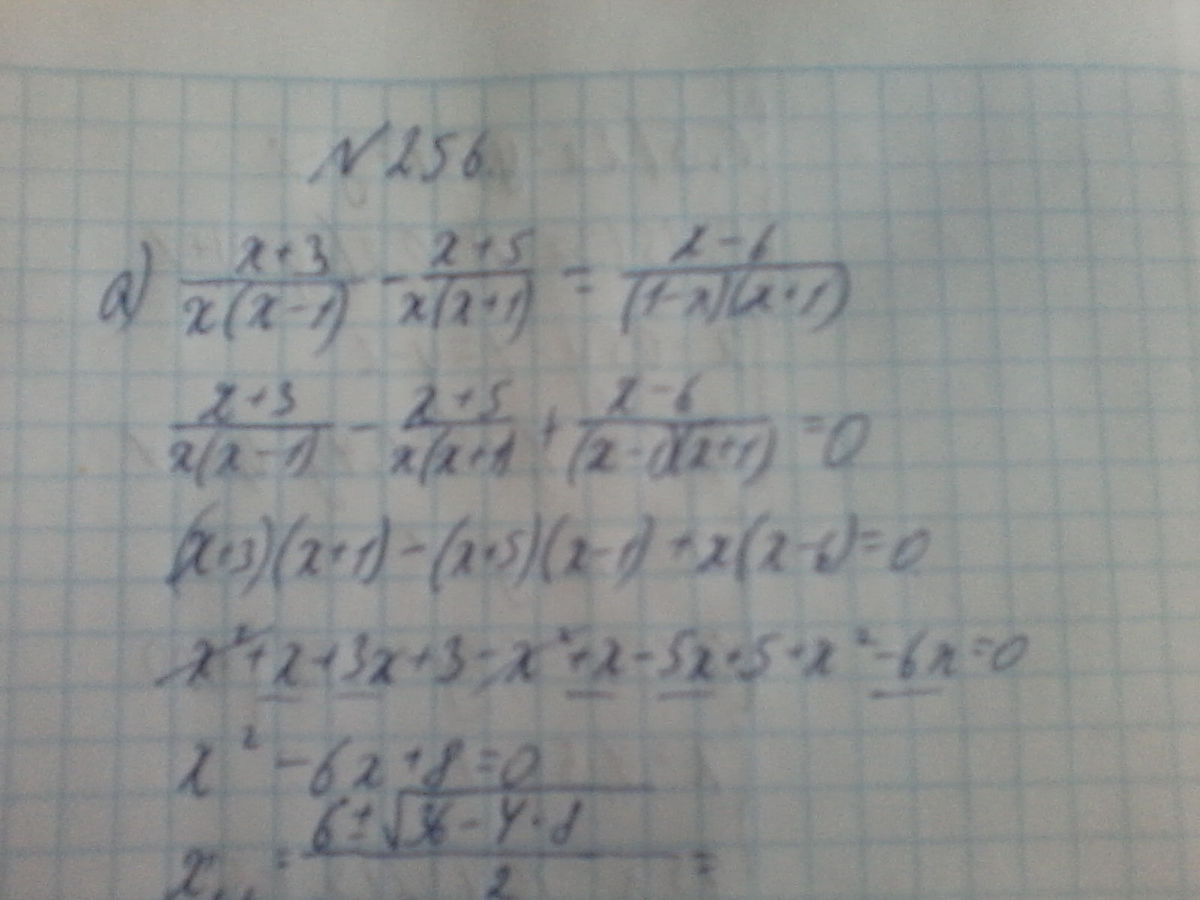 N 256.
а) (x+3)/(x(x-1)) - (x+5)/(x(x+1)) = (x-6)/((1-x)(x+1))
(x+3)/(x(x-1)) - (x+5)/(x(x+1) + (x-6)/((x-1)(x+1)) = 0
(x+3)(x+1) - (x+5)(x-1) + x(x-6) = 0
x² + x + 3x + 3 - x² + x - 5x + 5 + x² - 6x = 0
x² - 6x + 8 = 0
x = (6 ± √(36 - 4·8))/2 =